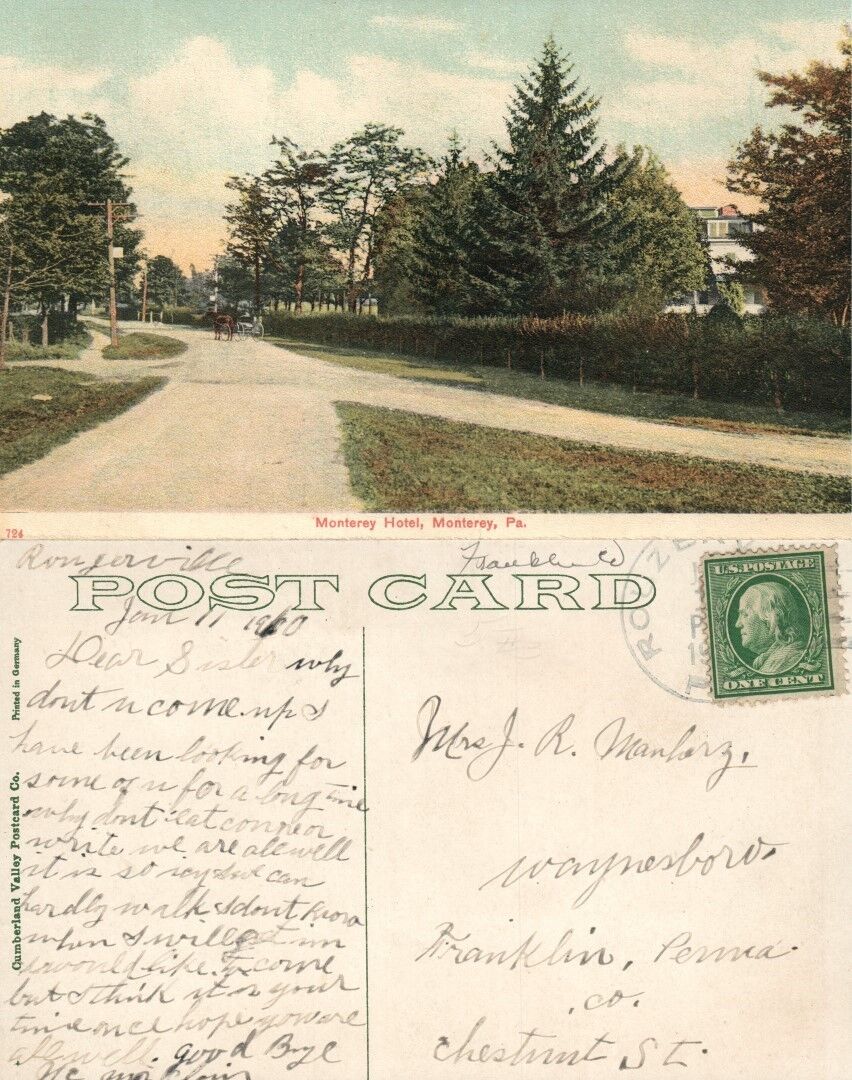 724
Monterey Hotel, Monterey, Pa.
POST CARD
Printed in Germany
Cumberland Valley Postcard Co.
U.S. POSTAGE
ONE CENT
Jan 11
Dear Sister why
dont u come up I
have been looking for
some of u for a long time
why dont
write we are all well
it is so icy we can
hardly walk I dont know
when I will
I would like to come
but I think it is your
time once hope you are
all well. good Bye
Mrs J. R.
Waynesboro
Franklin, Penna
co.
Chestnut St.